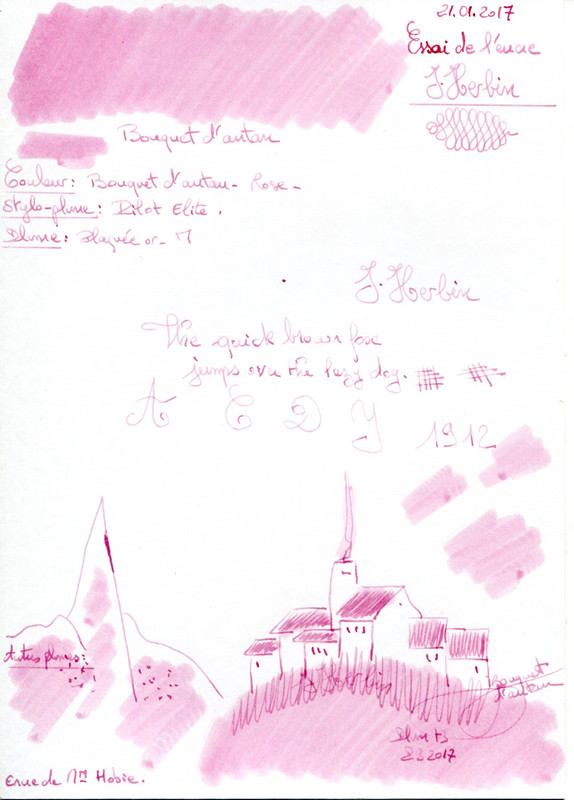 21.01.2017
Essai de l'encre
J. Herbin
Bouquet d'antan
Couleur: Bouquet d'antan - Rose -
Stylo-plume: Pilot Elite.
Plume: Plaquée or - M
J. Herbin
The quick brown fox
jumps over the lazy dog.
A C D Y
1912
Autres plumes:
J. Herbin
Bouquet
d'antan
Plume B
2017
Encre de